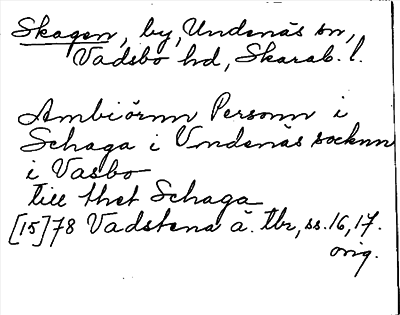 Skagen, by, Undenäs sn,
Vadsbo hd, Skarab. l.
Ambiörnn Personn i
Schaga i Vndenäs socknn
i Vasbo
till thet Schaga
[15]78 Vadstena ä. tbr, ss. 16, 17.
orig.